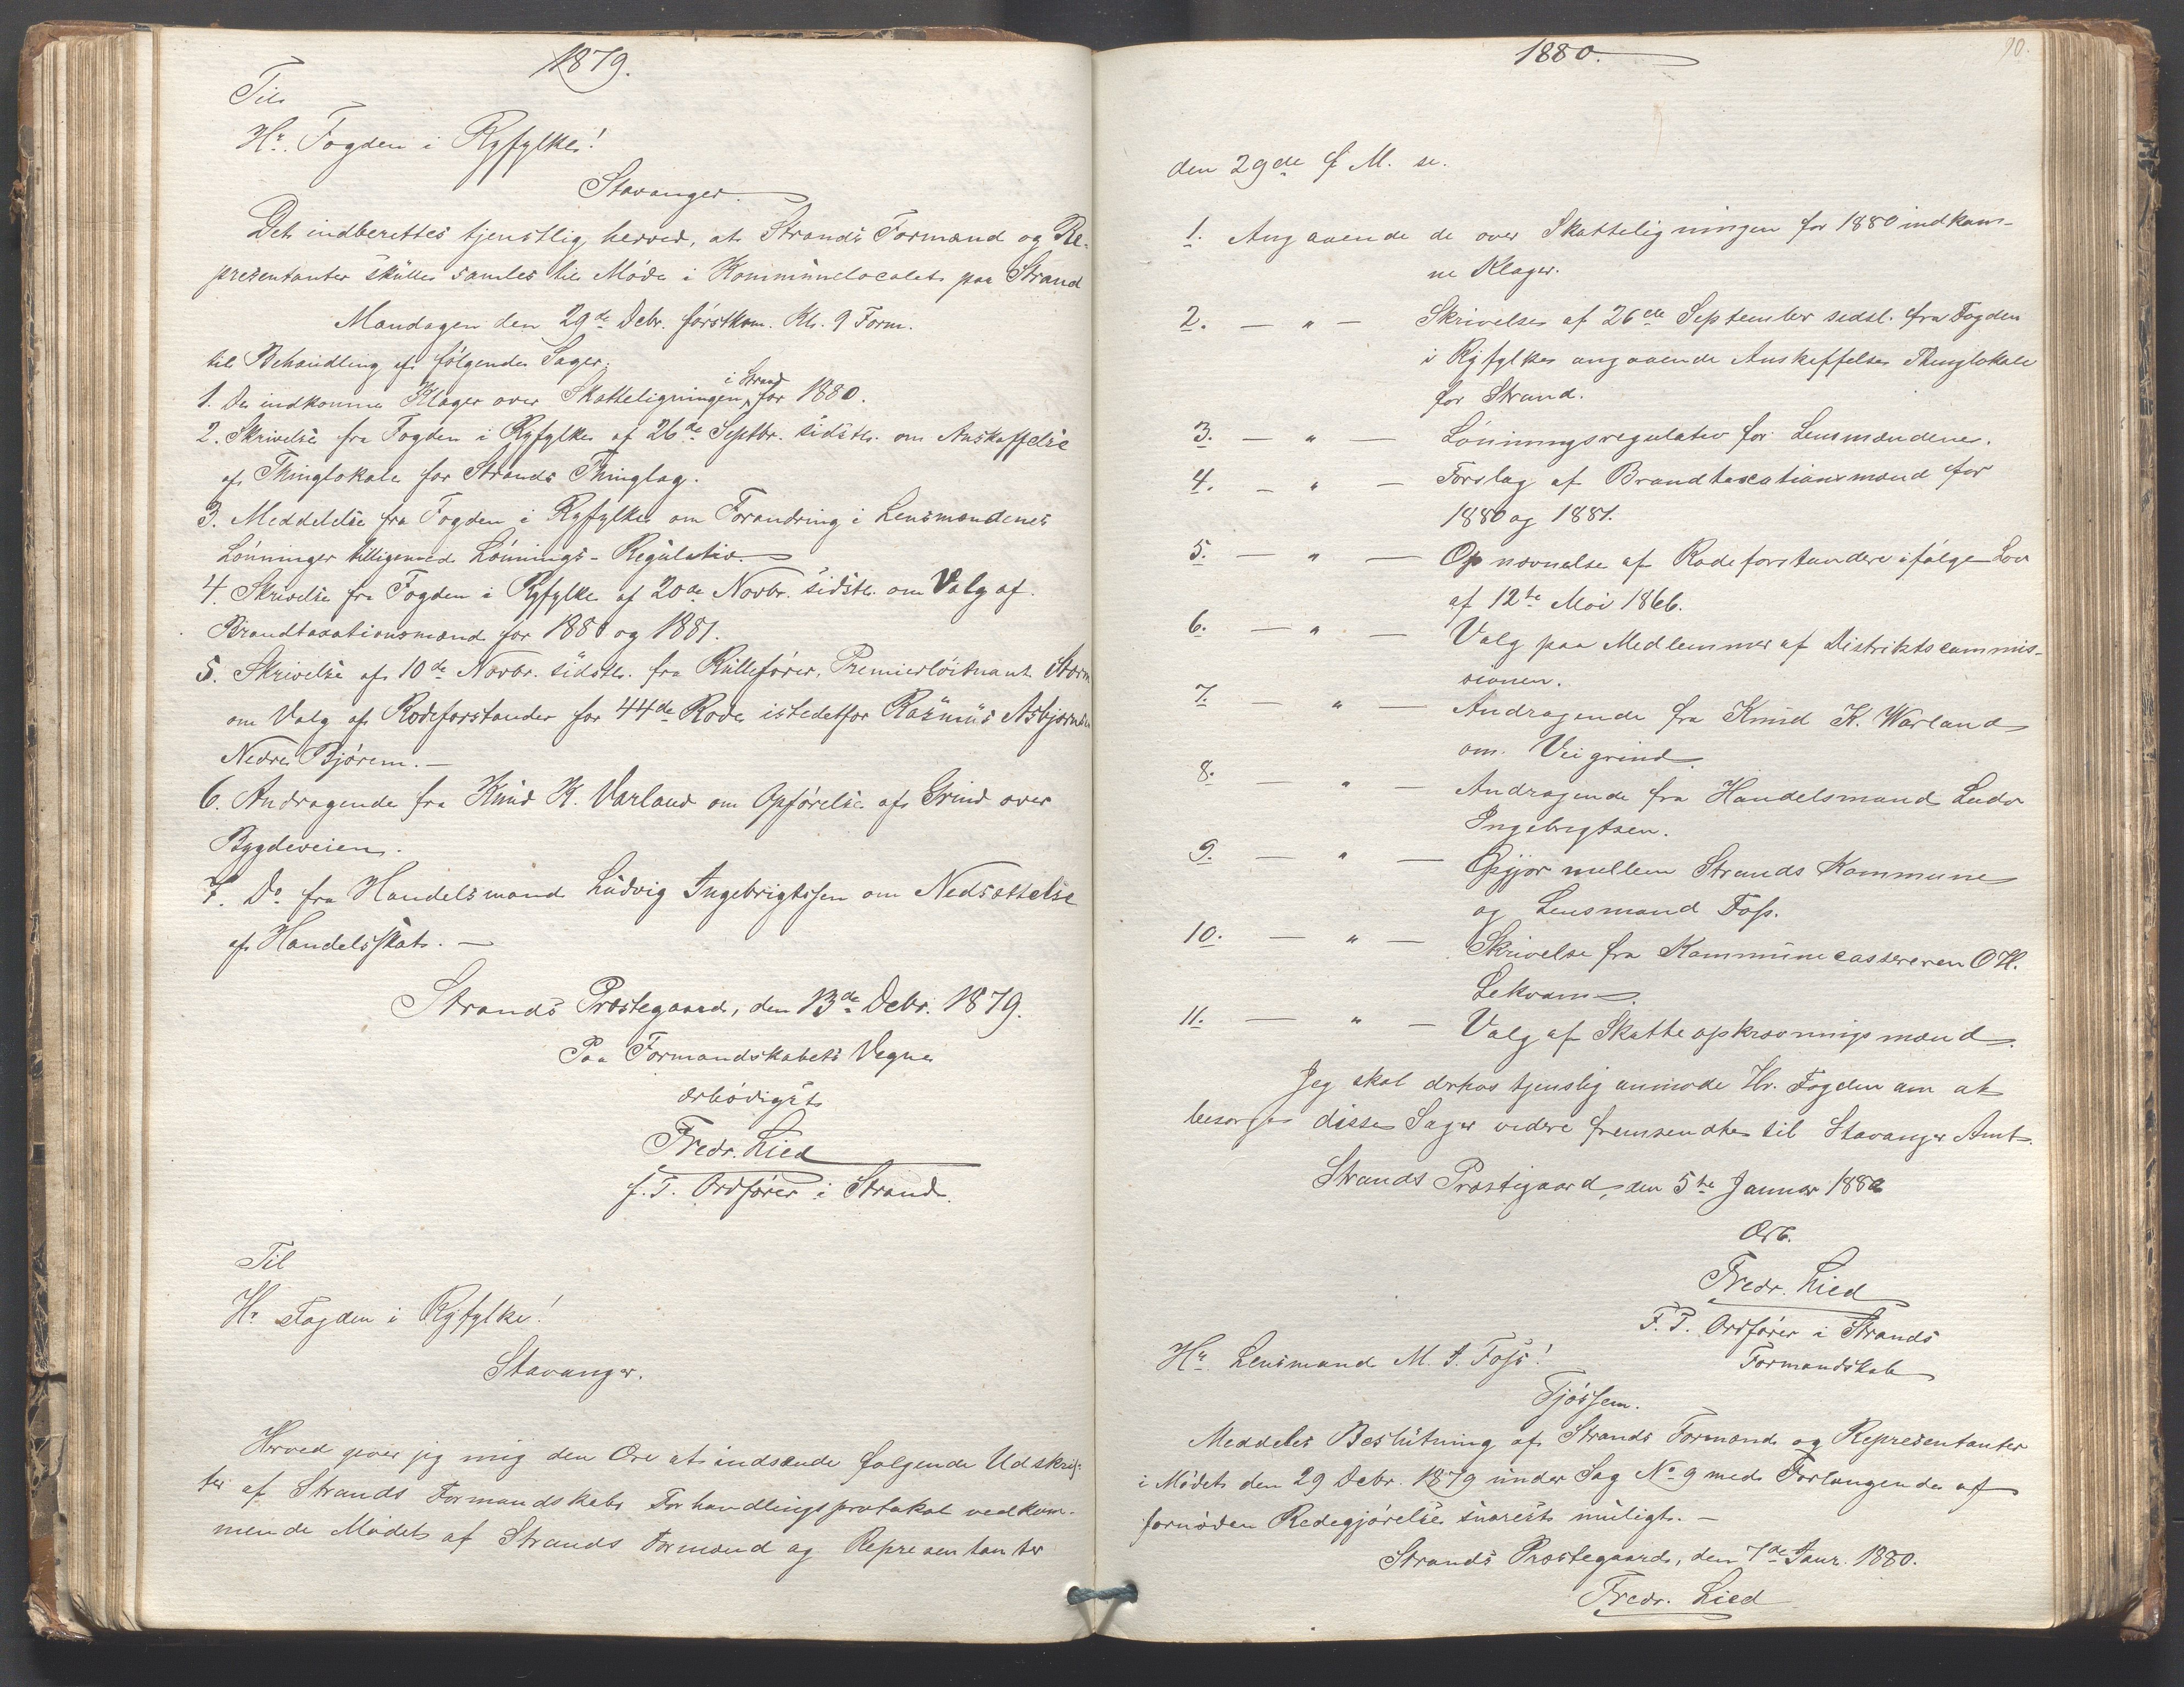 1879.
Til
Hr. Fogden i Ryfylke!
Stavanger.
Det indberettes tjenstlig herved, at Strands Formænd og Re-
præsentanter skulle samles til Møde i Kommunelocalet paa Strand
Mandagen den 29de Debr. førstkom. Kl. 9 Form.
til Behandling af følgende Sager:
1. De indkomne Klager over Skatteligningen i Strand for 1880.
2. Skrivelse fra Fogden i Ryfylke af 26de Septbr. sidstl. om Anskaffelse
af Thinglokale for Strands Thinglag.
3. Meddelelse fra Fogden i Ryfylke om Forandring i Lensmændenes
Lønninger tilligemed Lønnings-Regulativ.
4. Skrivelse fra Fogden i Ryfylke af 20de Novbr. sidstl. om Valg af
Brandtaxationsmænd for 1880 og 1881.
5. Skrivelse af 10de Novbr. sidstl. fra Rullefører, Premierløitnant Storm
om Valg af Rodeforstander for 44de Rode istedetfor Rasmus Asbjørnsen
Nedre Bjørem. —
6. Andragende fra Knud K. Varland om Opførelse af Grind over
Bygdeveien.
7. Do fra Handelsmand Ludvig Ingebrigtsen om Nedsættelse
af Handelsskat. —
Strands Præstegaard, den 13de Debr. 1879.
Paa Formandskabets Vegne
ærbødigst
Fredr. Lied
f. T. Ordfører i Strand.
Til
Hr Fogden i Ryfylke!
Stavanger.
Herved giver jeg mig den Ære at indsende følgende Udskrif-
ter af Strands Formandskabs Forhandlingsprotokol vedkom-
mende Mødet af Strands Formænd og Representanter
1880.
90.
den 29de f. M. se.
1. Angaaende de over Skatteligningen for 1880 indkom-
ne Klager.
2. — " — Skrivelse af 26de September sidstl. fra Fogden
i Ryfylke angaaende Anskaffelse Thinglokale
for Strand.
3. — " — Lønningsregulativ for Lensmændene.
4. — " — Forslag af Brandtaxationsmænd for
1880 og 1881.
5. — " — Opnævnelse af Rodeforstandere ifølge Lov
af 12te Mai 1866.
6. — " — Valg paa Medlemmer af Distriktscommis-
sionen.
7. — " — Andragende fra Knud K. Warland
om Veigrind.
8. — " — Andragende fra Handelsmand Ludv
Ingebrigtsen.
9. — " — Opgjør mellem Strands Kommune
og Lensmand Foss.
10. — " — Skrivelse fra Kommunecassereren O H.
Lekvam.
11. — " — Valg af Skatteopkrævningsmænd.
Jeg skal derhos tjenslig anmode Hr. Fogden om at
besørge disse Sager videre fremsendte til Stavanger Amt.
Strands Præstegaard, den 5te Januar 1880
Ærb.
Fredr. Lied
F. T. Ordfører i Strands
Formandskab
Hr. Lensmand M. A. Foss!
Tjøssem.
Meddeles Beslutning af Strands Formænd og Representanter
i Mødet den 29 Debr. 1879 under Sag No 9 med Forlangende af
fornøden Redegjørelse snarest muligt. —
Strands Præstegaard, den 7de Janr. 1880.
Fredr. Lied